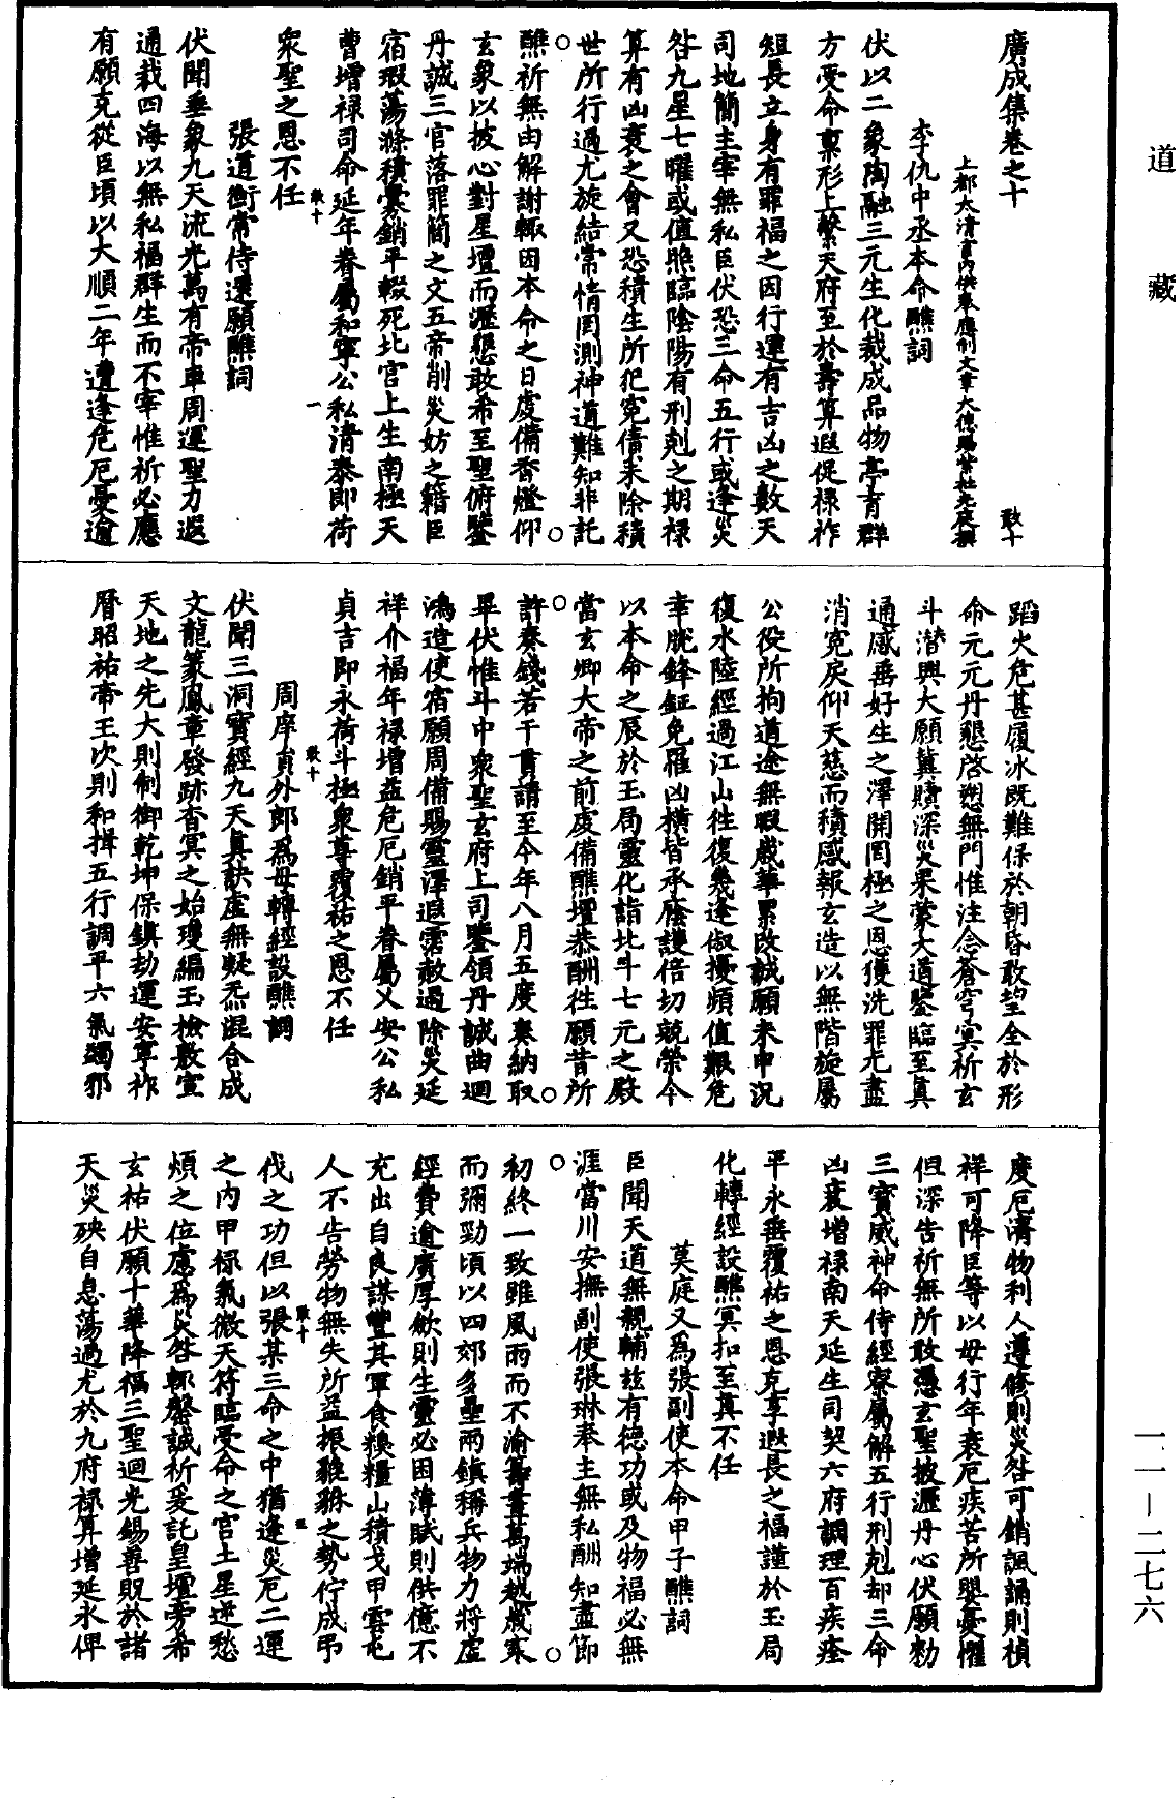 道藏
廣成集卷之十
敢十
上都太清宮內供奉應制文章大德賜紫杜光庭撰
李仇中丞本命醮詞
伏以二象陶融三元生化裁成品物亭育群
方受命稟形上繫天府至於壽算遐促祿祚
短長立身有罪福之因行運有吉凶之數天
司地簡主宰無私臣伏恐三命五行或逢災
咎九星七曜或值照臨陰陽有刑剋之期祿
算有凶衰之會又恐積生所犯冤債未除積
世所行過尤旋結常情罔測神道難知非託
醮祈無由解謝輒因本命之日虔備香燈仰
玄象以披心對星壇而瀝懇敢希至聖俯鑒
丹誠三官落罪簡之文五帝削災妨之籍臣
宿瑕蕩滌積釁銷平輟死北宮上生南極天
曹增祿司命延年眷屬和寧公私清泰即荷
敢十
一
眾聖之恩不任
張道衡常侍還願醮詞
伏聞垂象九天流光萬有帝車周運聖力遐
通裁四海以無私福群生而不宰惟祈必應
有願克從臣頃以大順二年遭逢危厄憂逾
蹈火危甚履冰既難保於朝昏敢望全於形
命元元丹懇啓愬無門惟注念蒼穹冥祈玄
斗潛興大願冀贖深災果蒙大道鑒臨至真
通感垂好生之澤開罔極之恩獲洗罪尤盡
消冤戾仰天慈而積感報玄造以無階旋屬
公役所拘道途無暇歲華累改誠願未申況
復水陸經過江山往復幾逢俶擾頻值艱危
幸脫鋒鉦免罹凶橫皆承蔭護倍切兢榮今
以本命之辰於玉局靈化詣北斗七元之殿
當玄卿大帝之前虔備醮壇恭酬往願昔所
許奏錢若干貫請至今年八月五度奏納取
畢伏惟斗中眾聖玄府上司鑒領丹誠曲迴
鴻造使宿願周備賜靈澤遐霑赦過除災延
祥介福年祿增益危厄銷平眷屬乂安公私
貞吉即永荷斗極眾尊覆祐之恩不任
敢十
周庠員外郎為母轉經設醮詞
伏聞三洞寶經九天真訣虛無凝炁混合成
文龍篆鳳章發跡杳冥之始瓊編玉檢敷宣
天地之先大則制御乾坤保鎮劫運安寧祚
曆昭祐帝王次則和揖五行調平六氣蠲邪
度厄濟物利人遵修則災咎可銷諷誦則禎
祥可降臣等以母行年衰厄疾苦所嬰憂懼
但深告祈無所敢憑玄聖披瀝丹心伏願勑
三寶威神命侍經寮屬解五行刑剋却三命
凶衰增祿南天延生司契六府調理百疾痊
平永垂覆祐之恩克享遐長之福謹於玉局
化轉經設醮冥扣至真不任
莫庭乂為張副使本命甲子醮詞
臣聞天道無親輔玆有德功或及物福必無
涯當川安撫副使張琳奉主無私酬知盡節
初終一致雖風雨而不渝籌畫萬端越歲寒
而彌勁頃以四郊多壘兩鎮稱兵物力將虛
經費逾廣厚斂則生靈必困薄賦則供億不
充出自良謀豐其軍食糗糧山積戈甲雲屯
人不告勞物無失所益振貔貅之勢佇成弔
敢十
伐之功但以張某三命之中猶逢災厄二運
之內甲祿氣微天符臨受命之宮土星逆愁
煩之位慮為災咎輒罄誠祈爰託皇壇旁希
玄祐伏願十華降福三聖迴光錫善貺於諸
天災殃自息蕩過尤於九府祿算增延永俾
一一—二七六